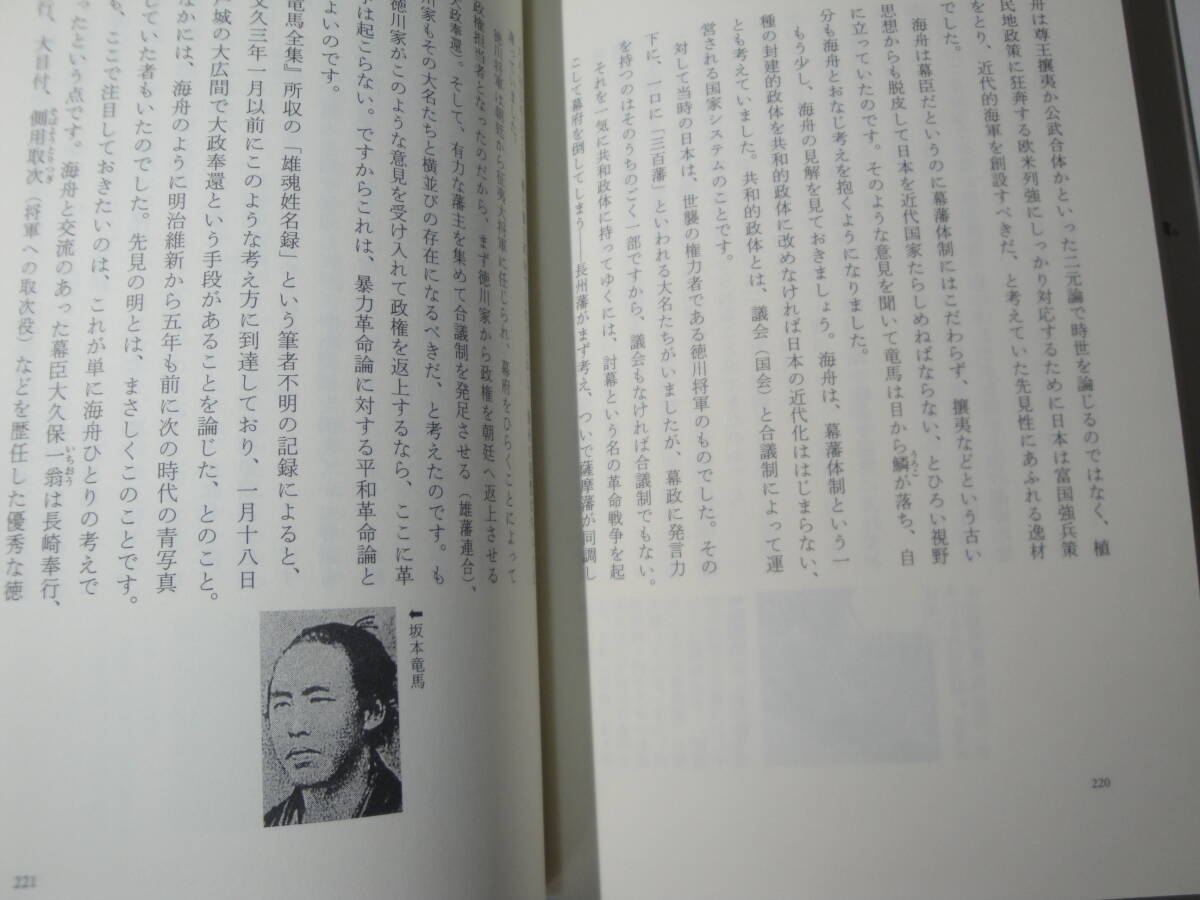 舟は尊王攘夷か公武合体かといった二元論で時世を論じるのではなく、植
民地政策に狂奔する欧米列強にしっかり対応するために日本は富国強兵策
をとり、近代的海軍を創設すべきだ、と考えていた先見性にあふれる逸材
でした。
海舟は幕臣だというのに幕藩体制にはこだわらず、攘夷などという古い
思想からも脱皮して日本を近代国家たらしめねばならない、とひろい視野
に立っていたのです。そのような意見を聞いて竜馬は目から鱗が落ち、自
うろこ
分も海舟とおなじ考えを抱くようになりました。
もう少し、海舟の見解を見ておきましょう。海舟は、幕藩体制という一
種の封建的政体を共和的政体に改めなければ日本の近代化ははじまらない、
とも考えていました。共和的政体とは、議会（国会）と合議制によって運
営される国家システムのことです。
対して当時の日本は、世襲の権力者である徳川将軍のものでした。その
下に、一口に「三百藩」といわれる大名たちがいましたが、幕政に発言力
を持つのはそのうちのごく一部ですから、議会もなければ合議制でもない。
それを一気に共和政体に持ってゆくには、討幕という名の革命戦争を起
こして幕府を倒してしまう――長州藩がまず考え、ついで薩摩藩が同調し
220
考っていました。
徳川将軍は朝廷から征夷大将軍に任じられ、幕府をひらくことによって
政権担当者となったのだから、まず徳川家から政権を朝廷へ返上させる
大政奉還）。そして、有力な藩主を集めて合議制を発足させる（雄藩連合）、
川家もその大名たちと横並びの存在になるべきだ、と考えたのです。も
徳川家がこのような意見を受け入れて政権を返上するなら、ここに革
争は起こらない。ですからこれは、暴力革命論に対する平和革命論と
よいのです。
竜馬全集』所収の「雄魂姓名録」という筆者不明の記録によると、
文久三年一月以前にこのような考え方に到達しており、一月十八日
戸城の大広間で大政奉還という手段があることを論じた、とのこと。
なかには、海舟のように明治維新から五年も前に次の時代の青写真
していた者もいたのでした。先見の明とは、まさしくこのことです。
も、ここで注目しておきたいのは、これが単に海舟ひとりの考えで
ったという点です。海舟と交流のあった幕臣大久保一翁は長崎奉行、
いちおう
行、大目付、側用取次（将軍への取次役）などを歴任した優秀な徳
そばようとりつぎ
⬅坂本竜馬
221